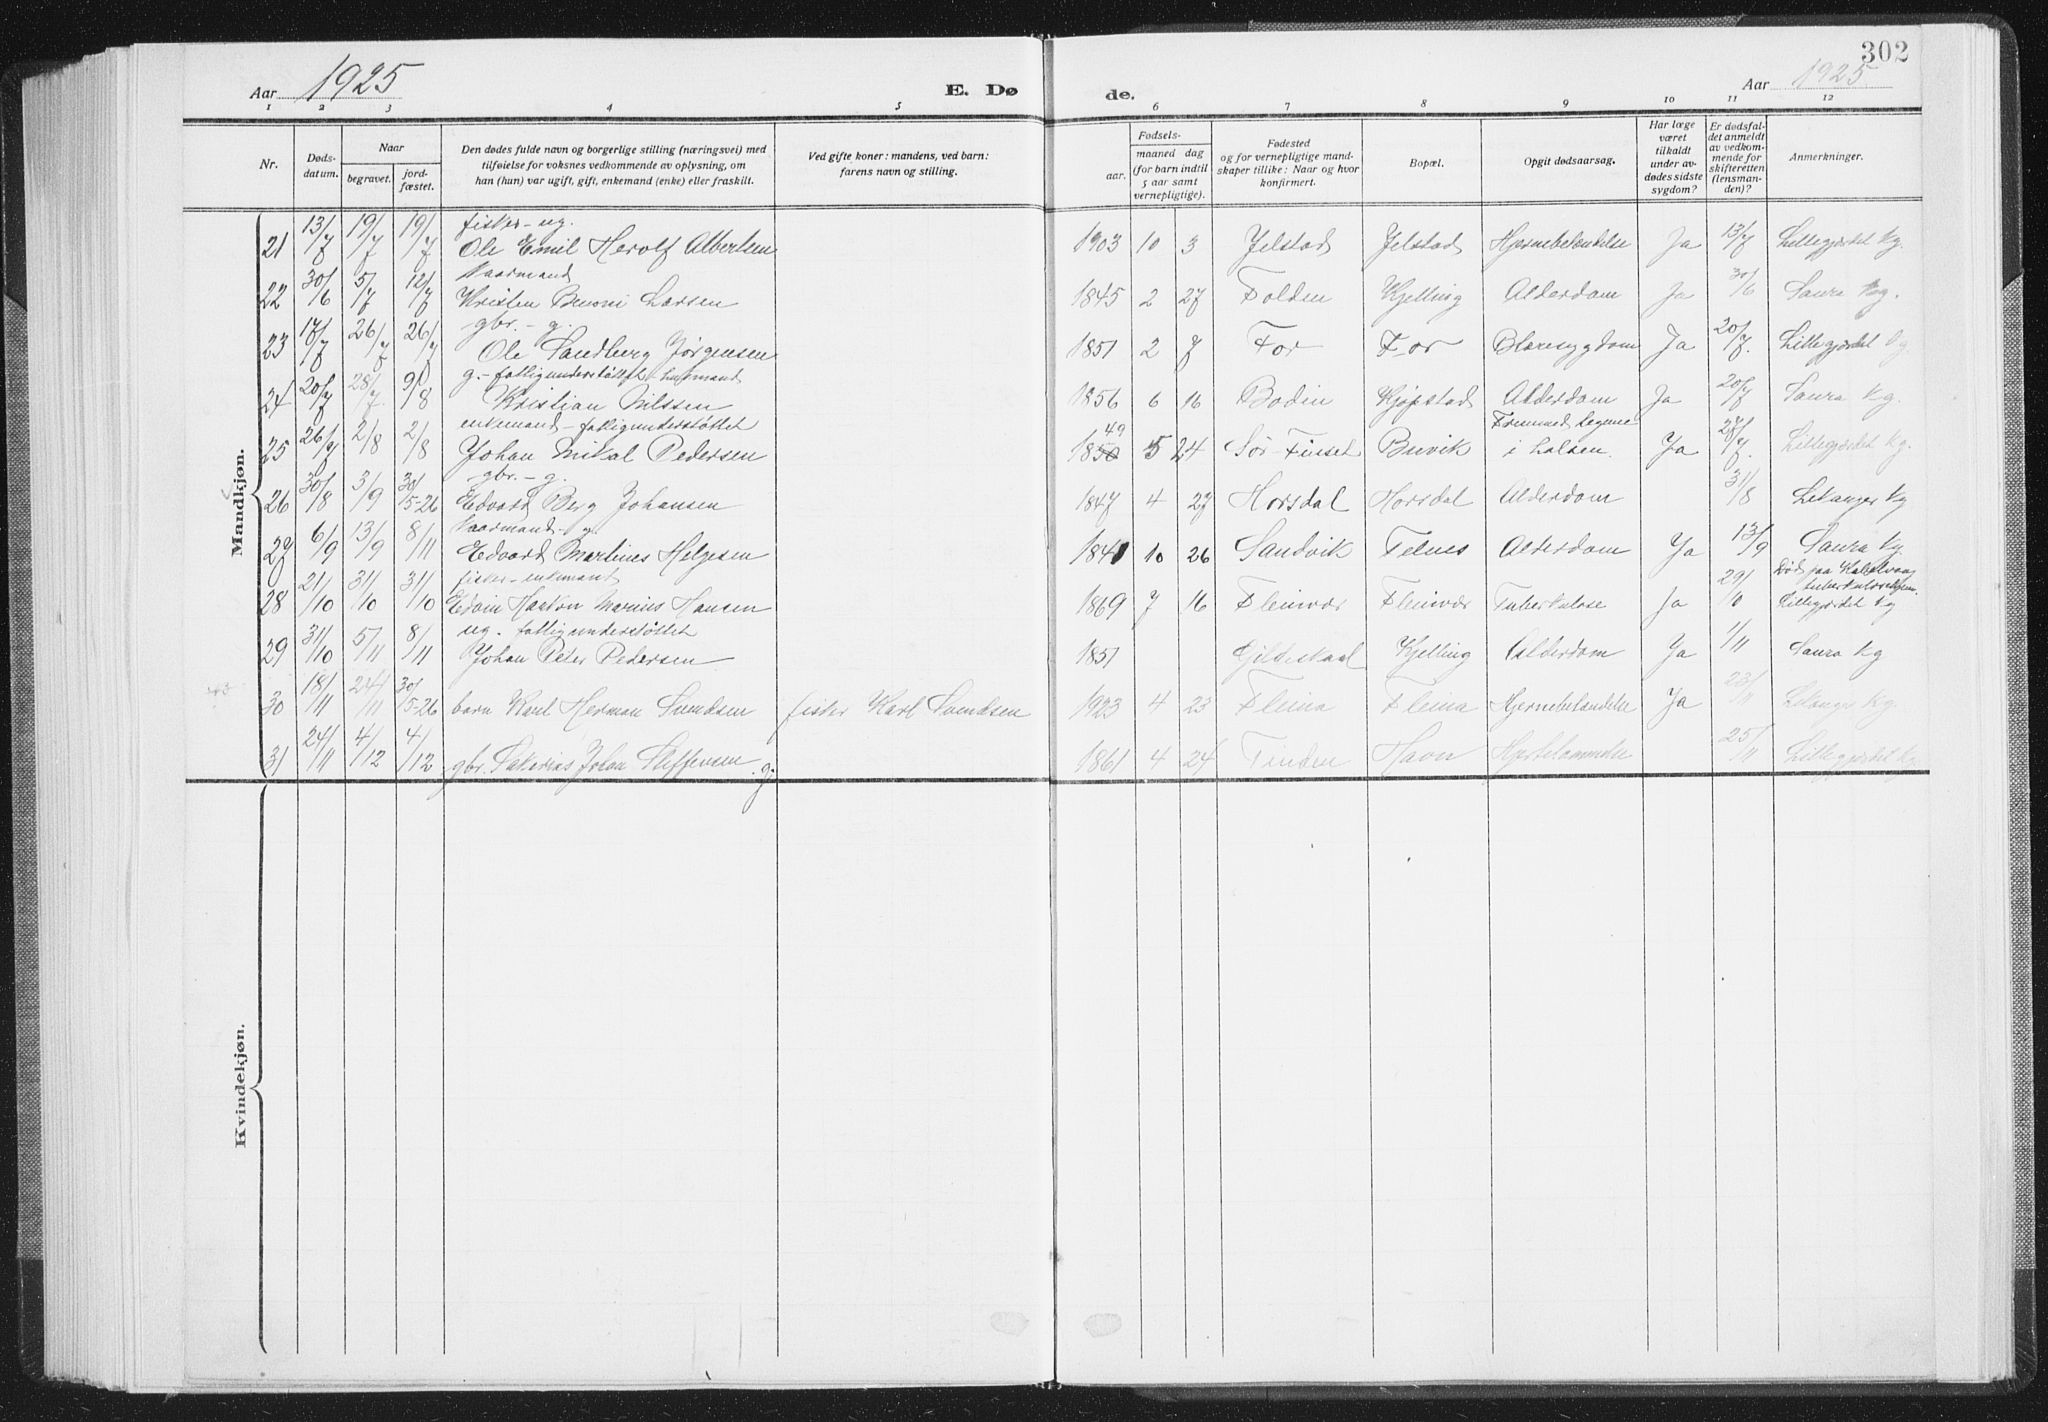 302
Aar 1925
E. Dø
de.
Aar 1925
1 2 3 4 5 6 7 8 9 10 11 12
Nr.
Døds-
datum.
Naar
begravet.
jord-
fæstet.
Den dødes fulde navn og borgerlige stilling (næringsvei) med
tilføielse for voksnes vedkommende av oplysning, om
han (hun) var ugift, gift, enkemand (enke) eller fraskilt.
Ved gifte koner: mandens, ved barn:
farens navn og stilling.
Fødsels-
aar.
maaned dag
(for barn indtil
5 aar samt
vernepligtige).
Fødested
og for vernepligtige mand-
skaper tillike: Naar og hvor
konfirmert.
Bopæl.
Opgit dødsaarsag.
Har læge
været
tilkaldt
under av-
dødes sidste
sygdom?
Er dødsfal-
det anmeldt
av vedkom-
mende for
skifteretten
(lensman-
den)?
Anmerkninger.
Mandkjøn.
fisker - ug.
21 13/7 19/7 19/7 Ole Emil Herolf Albertsen 1903 10 3 Jelstad Jelstad Hjernebetændelse Ja 13/7 Lillegjærdet kg.
Kaarmand
22 30/6 5/7 12/7 Kristen Benoni Larsen 1845 2 27 Folden Kjelling Alderdom Ja 30/6 Saura kg.
gbr. - g.
23 17/7 26/7 26/7 Ole Sandberg Jørgensen 1851 2 7 For For Blæresygdom Ja 20/7. Lillegjærdet kg.
g. - fattigunderstøttet husmand
24 20/7 28/7. 9/8 Kristian Nilssen 1856 6 16 Bodin Kjøpstad Alderdom Ja 20/7 Saura kg.
enkemand - fattigunderstøttet
Fremmed legeme
25 26/7 2/8 2/8 Johan Mikal Pedersen 1850 49 5 24 Sør-Finset Buvik i halsen. Ja 27/7. Lillegjærdet kg.
gbr. - g.
26 30/8 3/9 30/5-26 Edvard Berg Johansen 1847 4 27 Horsdal Horsdal Alderdom 31/8 Lekanger kg
Kaarmand - g.
27 6/9 13/9 8/11 Edvard Martines Helgesen 1841 10 26 Sandvik Felnes Alderdom Ja 13/9 Saura kg.
fisker - enkemand
Død paa Kabelvaag
tuberkulosehjem.
28 21/10 31/10 31/10 Edvin Haakon Marius Hansen 1869 7 16 Fleinvær Fleinvær Tuberkulose Ja 29/10 Lillegjærdet kg
ug. fattigunderstøttet
29 31/10 5/11 8/11 Johan Peter Pedersen 1851 Gildeskaal Kjelling Alderdom Ja 1/11 Saura kg
30 18/11 24/11 30/5-26 barn Karl Herman Svendsen fisker Karl Svendsen 1923 4 23 Fleina Fleina Hjernebetændelse Ja 23/11 Lekanger kg.
31 24/11 4/12 4/12 gbr. Sakarias Johan Steffensen g. 1861 4 24 Finden Havn Hjertelammelse 25/11 Lillegjærdet kg
Kvindekjøn.